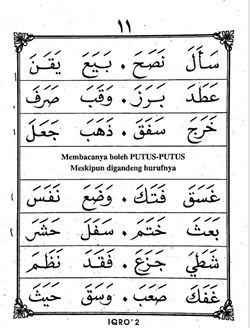 ١١
سَأَلَ نَصَحَ . بَيَعَ يَقَنَ
عَطَدَ بَرَزَ . وَقَبَ صَرَفَ
خَرَجَ سَفَقَ . ذَهَبَ جَعَلَ
Membacanya boleh PUTUS-PUTUS
Meskipun digandeng hurufnya
غَسَقَ فَتَكَ . وَضَعَ نَفَسَ
بَعَثَ خَتَمَ . سَفَلَ حَشَرَ
شَطَيَ جَزَعَ . فَقَدَ نَظَمَ
غَفَكَ صَعَبَ . وَسَقَ حَيَثَ
IQRO' 2